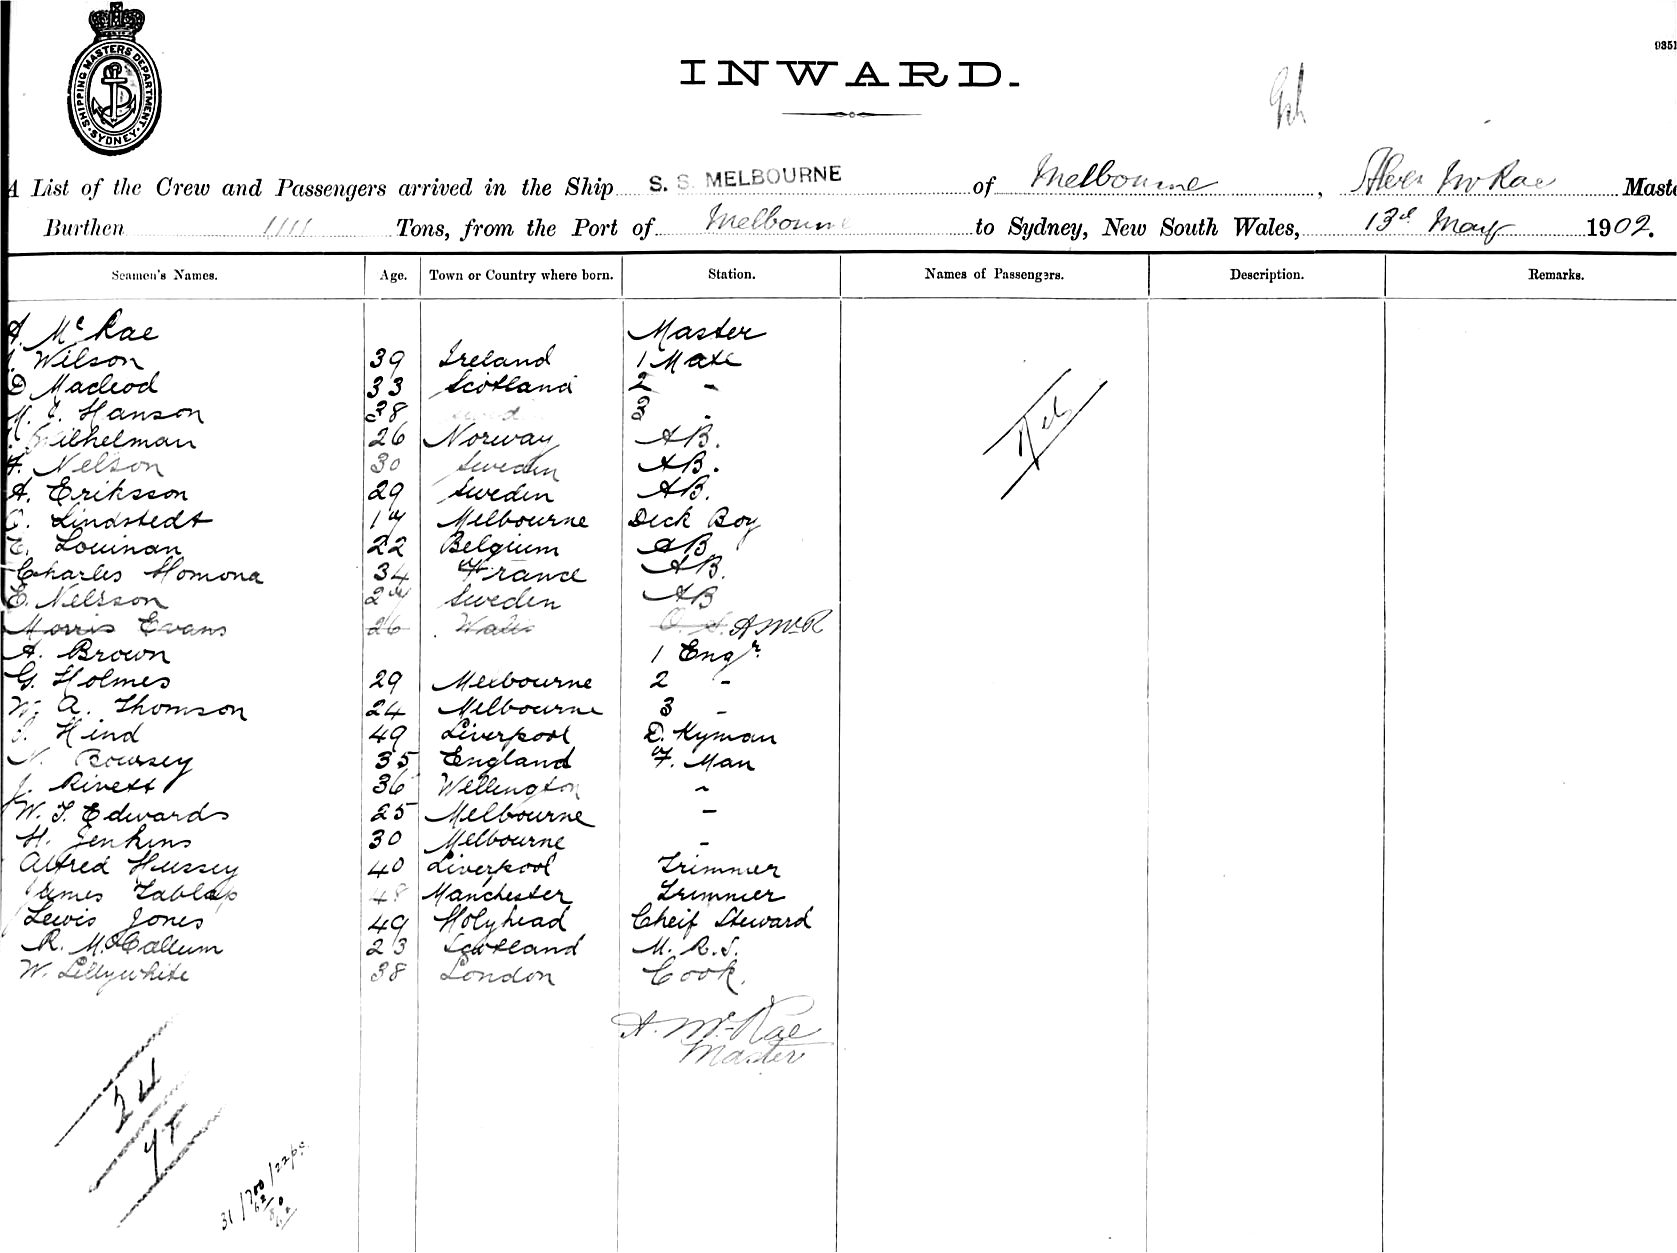 SHIPPING MASTERS DEPARTMENT
SYDNEY
INWARD.
A List of the Crew and Passengers arrived in the Ship S. S. MELBOURNE of Melbourne, McRae Master
Burthen 1111 Tons, from the Port of Melbourne to Sydney, New South Wales, 13th May 1902.
Seamen's Names. Age. Town or Country where born. Station. Names of Passengers. Description. Remarks.
A. McRae Master
Wilson 39 Ireland 1 Mate
D Macleod 33 Scotland 2 -
M. J. Hanson 38 3 -
Wilhelman 26 Norway AB.
F. Nelson 30 Sweden AB.
A. Eriksson 29 Sweden AB.
Lindstedt 17 Melbourne Deck Boy
E. Louinan 22 Belgium AB
Charles Momona 34 France AB.
E. Nelsson 27 Sweden AB
Morris Evans 26 Wales O. S. A McR
A. Brown 1 Engr.
G. Holmes 29 Melbourne 2 -
W. A. Thomson 24 Melbourne 3 -
Hind 49 Liverpool D. Kyman
N. Boursey 35 England F. Man
J. Rivett 36 Wellington -
W. T. Edwards 25 Melbourne -
H. Jenkins 30 Melbourne -
Alfred Hussey 40 Liverpool Trimmer
James 48 Manchester Trimmer
Lewis Jones 49 Holyhead Cheif Steward
R. McCallum 23 Scotland M. R. S.
W. Lillywhite 38 London Cook.
A. McRae
Master
24